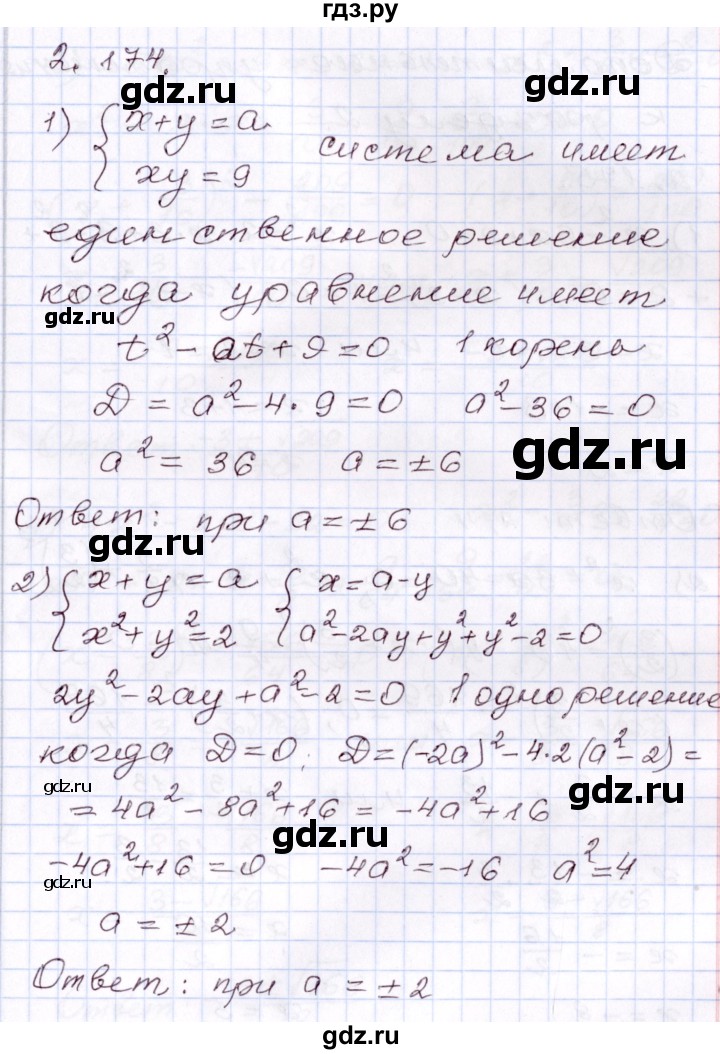 гдз.ру
2.174.
gdz.ru
1) { x+y=a
xy=9
система имеет
gdz.ru
единственное решение
когда уравнение имеет
gdz.ru
t²-at+9=0 1 корень
D=a²-4·9=0 a²-36=0
gdz.ru
a²=36 a=±6
Ответ: при a=±6
gdz.ru
2) { x+y=a { x=a-y
x²+y²=2 a²-2ay+y²+y²-2=0
2y²-2ay+a²-2=0 1 одно решение
когда D=0; D=(-2a)²-4·2(a²-2)=
gdz.ru
=4a²-8a²+16=-4a²+16
gdz.ru
-4a²+16=0 -4a²=-16 a²=4
gdz.ru
a=±2
Ответ: при a=±2
gdz.ru
gdz.ru